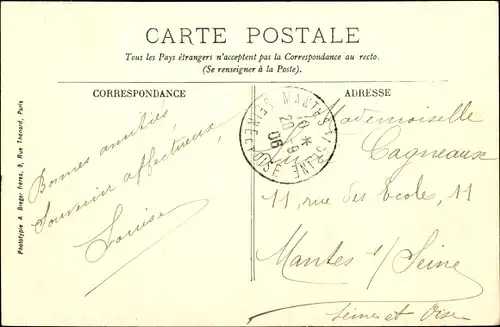 CARTE POSTALE
Tous les Pays étrangers n'acceptent pas la Correspondance au recto.
(Se renseigner à la Poste).
CORRESPONDANCE
ADRESSE
Bonnes amitiés
Souvenir affectueux
Louise
Mademoiselle
Cagneaux
11, rue des Ecoles, 11
Mantes s/ Seine
Seine et Oise
MANTES-S-SEINE
20 - 9
06
SEINE-ET-OISE
Phototypie A. Breger frères, 9, Rue Thénard, Paris